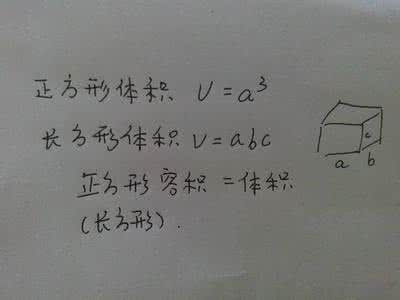 正方形体积 V=a³
长方形体积 V=abc
正方形容积=体积
(长方形).
c
a b